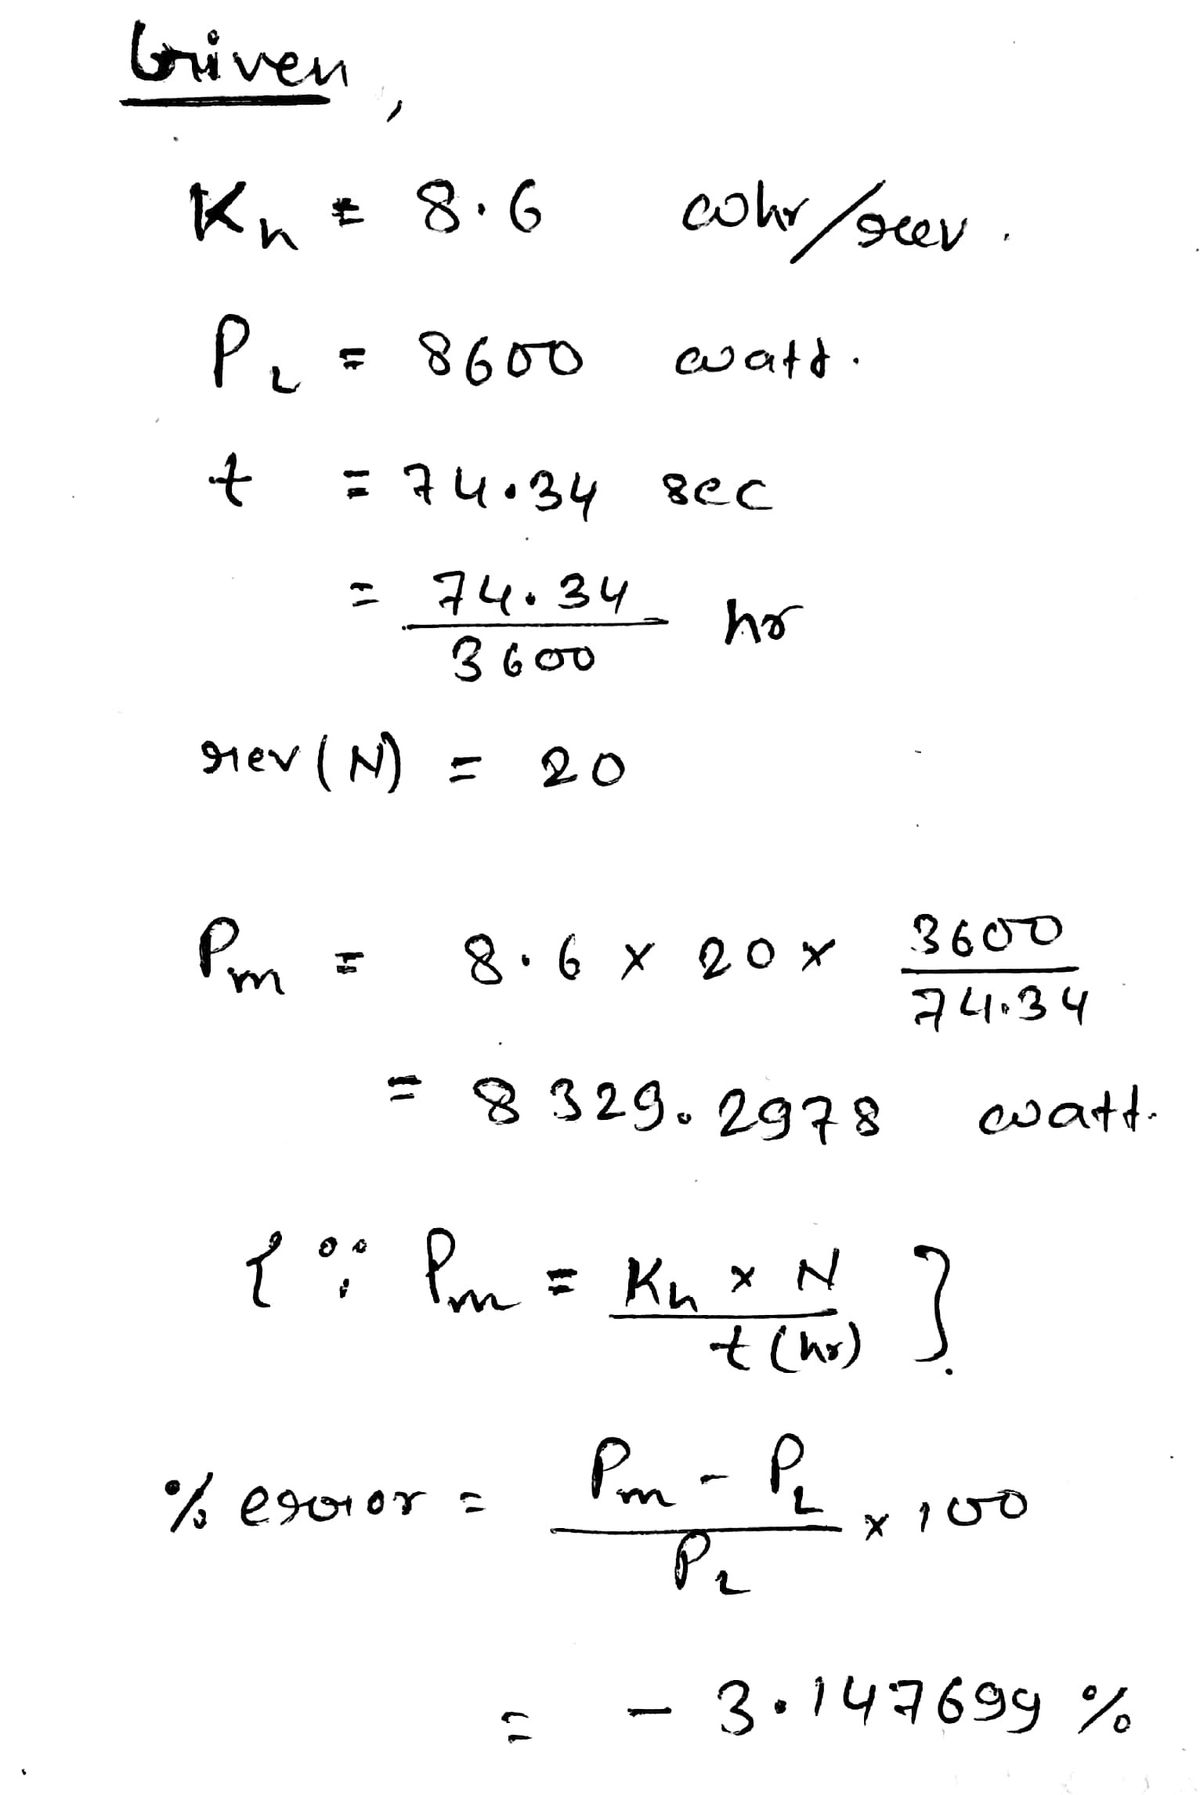 Given,
Kh = 8.6 whr/rev.
PL = 8600 watt.
t = 74.34 sec
= 74.34/3600 hr
rev(N) = 20
Pm = 8.6 × 20 × 3600/74.34
= 8329.2978 watt.
{∵ Pm = Kh × N / t(hr)}.
% error = Pm - PL / PL × 100
= - 3.147699 %